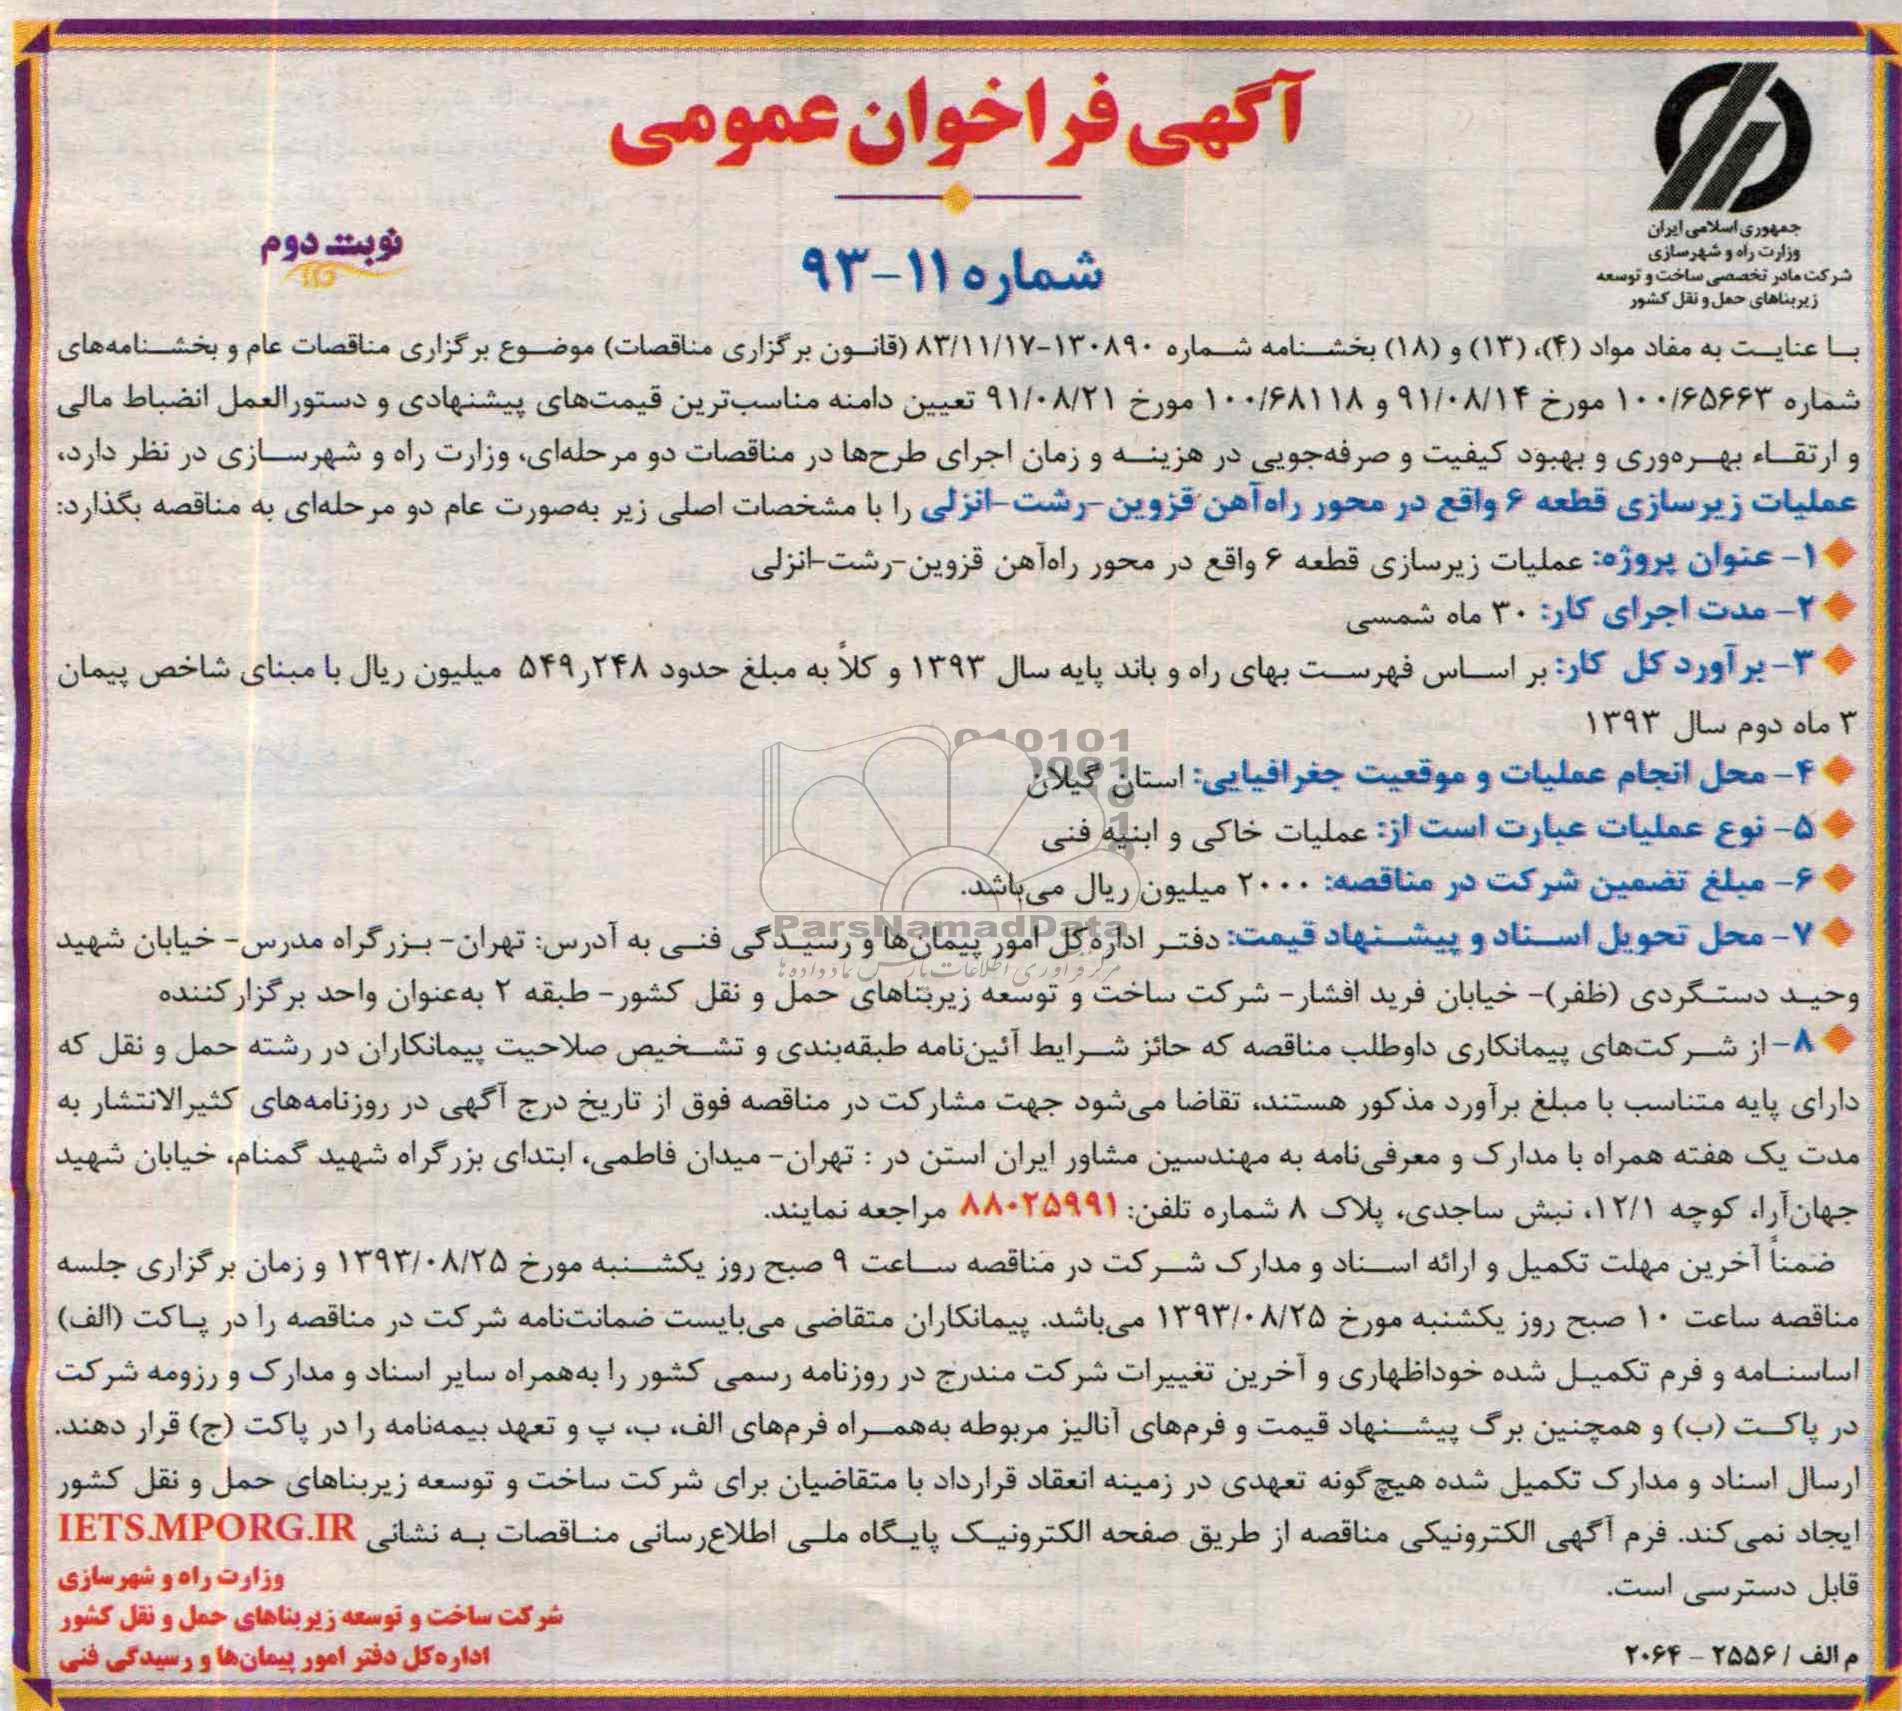 آگهی فراخوان عمومی
جمهوری اسلامی ایران
وزارت راه و شهرسازی
شرکت مادر تخصصی ساخت و توسعه
زیربناهای حمل و نقل کشور
شماره ۱۱-۹۳
نوبت دوم
بـا عنایـت به مفاد مواد (۴)، (۱۳) و (۱۸) بخشـنامه شـماره ۱۳۰۸۹۰-۸۳/۱۱/۱۷ (قانـون برگزاری مناقصات) موضـوع برگزاری مناقصات عام و بخشـنامه‌های
شماره ۱۰۰/۶۵۶۶۳ مورخ ۹۱/۰۸/۱۴ و ۱۰۰/۶۸۱۱۸ مورخ ۹۱/۰۸/۲۱ تعیین دامنه مناسب‌ترین قیمت‌های پیشنهادی و دستورالعمل انضباط مالی
و ارتقـاء بهـره‌وری و بهبود کیفیت و صرفه‌جویی در هزینـه و زمان اجرای طرح‌ها در مناقصات دو مرحله‌ای، وزارت راه و شهرسـازی در نظر دارد،
عملیات زیرسازی قطعه ۶ واقع در محور راه‌آهن قزوین-رشت-انزلی را با مشخصات اصلی زیر به‌صورت عام دو مرحله‌ای به مناقصه بگذارد:
۱- عنوان پروژه: عملیات زیرسازی قطعه ۶ واقع در محور راه‌آهن قزوین-رشت-انزلی
۲- مدت اجرای کار: ۳۰ ماه شمسی
۳- برآورد کل کار: بر اسـاس فهرسـت بهای راه و باند پایه سال ۱۳۹۳ و کلاً به مبلغ حدود ۵۴۹ر۲۴۸ میلیون ریال با مبنای شاخص پیمان
۳ ماه دوم سال ۱۳۹۳
010101
0001
۴- محل انجام عملیات و موقعیت جغرافیایی: استان گیلان
۵- نوع عملیات عبارت است از: عملیات خاکی و ابنیه فنی
۶- مبلغ تضمین شرکت در مناقصه: ۲۰۰۰ میلیون ریال می‌باشد.
ParsNamadData
۷- محل تحویل اسـناد و پیشـنهاد قیمت: دفتـر اداره‌کل امور پیمان‌ها و رسیـدگی فنـی به آدرس: تهران- بـزرگراه مدرس- خیابان شهید
مرکز فرآوری اطلاعات پارس نماد داده‌ها
وحیـد دستـگردی (ظفر)- خیابان فرید افشار- شرکت ساخت و توسعه زیربناهای حمل و نقل کشور- طبقه ۲ به‌عنوان واحد برگزارکننده
۸- از شـرکت‌های پیمانکاری داوطلب مناقصه که حائز شـرایط آئین‌نامه طبقه‌بندی و تشـخیص صلاحیت پیمانکاران در رشته حمل و نقل که
دارای پایه متناسب با مبلغ برآورد مذکور هستند، تقاضا می‌شود جهت مشارکت در مناقصه فوق از تاریخ درج آگهی در روزنامه‌های کثیرالانتشار به
مدت یک هفته همراه با مدارک و معرفی‌نامه به مهندسین مشاور ایران استن در : تهران- میدان فاطمی، ابتدای بزرگراه شهید گمنام، خیابان شهید
جهان‌آرا، کوچه ۱۲/۱، نبش ساجدی، پلاک ۸ شماره تلفن: ۸۸۰۲۵۹۹۱ مراجعه نمایند.
ضمناً آخرین مهلت تکمیل و ارائه اسـناد و مدارک شـرکت در مناقصه سـاعت ۹ صبح روز یکشـنبه مورخ ۱۳۹۳/۰۸/۲۵ و زمان برگزاری جلسه
مناقصه ساعت ۱۰ صبح روز یکشنبه مورخ ۱۳۹۳/۰۸/۲۵ می‌باشد. پیمانکاران متقاضی می‌بایست ضمانت‌نامه شرکت در مناقصه را در پـاکت (الف)
اساسنـامه و فرم تکمیـل شده خوداظهاری و آخرین تغییرات شرکت مندرج در روزنامه رسمی کشور را به‌همراه سایر اسناد و مدارک و رزومه شرکت
در پاکـت (ب) و همچنین برگ پیشـنهاد قیمت و فرم‌های آنالیز مربوطه به‌همـراه فرم‌های الف، ب، پ و تعهد بیمه‌نامه را در پاکت (ج) قرار دهند.
ارسال اسناد و مدارک تکمیل شده هیچ‌گونه تعهدی در زمینه انعقاد قرارداد با متقاضیان برای شرکت ساخت و توسعه زیربناهای حمل و نقل کشور
ایجاد نمی‌کند. فرم آگهی الکترونیکی مناقصه از طریق صفحه الکترونیـک پایـگاه ملـی اطلاع‌رسانی منـاقصات بـه نشانی IETS.MPORG.IR
قابل دسترسی است.
وزارت راه و شهرسازی
شرکت ساخت و توسعه زیربناهای حمل و نقل کشور
اداره‌کل دفتر امور پیمان‌ها و رسیدگی فنی
م الف / ۲۵۵۶ - ۲۰۶۴